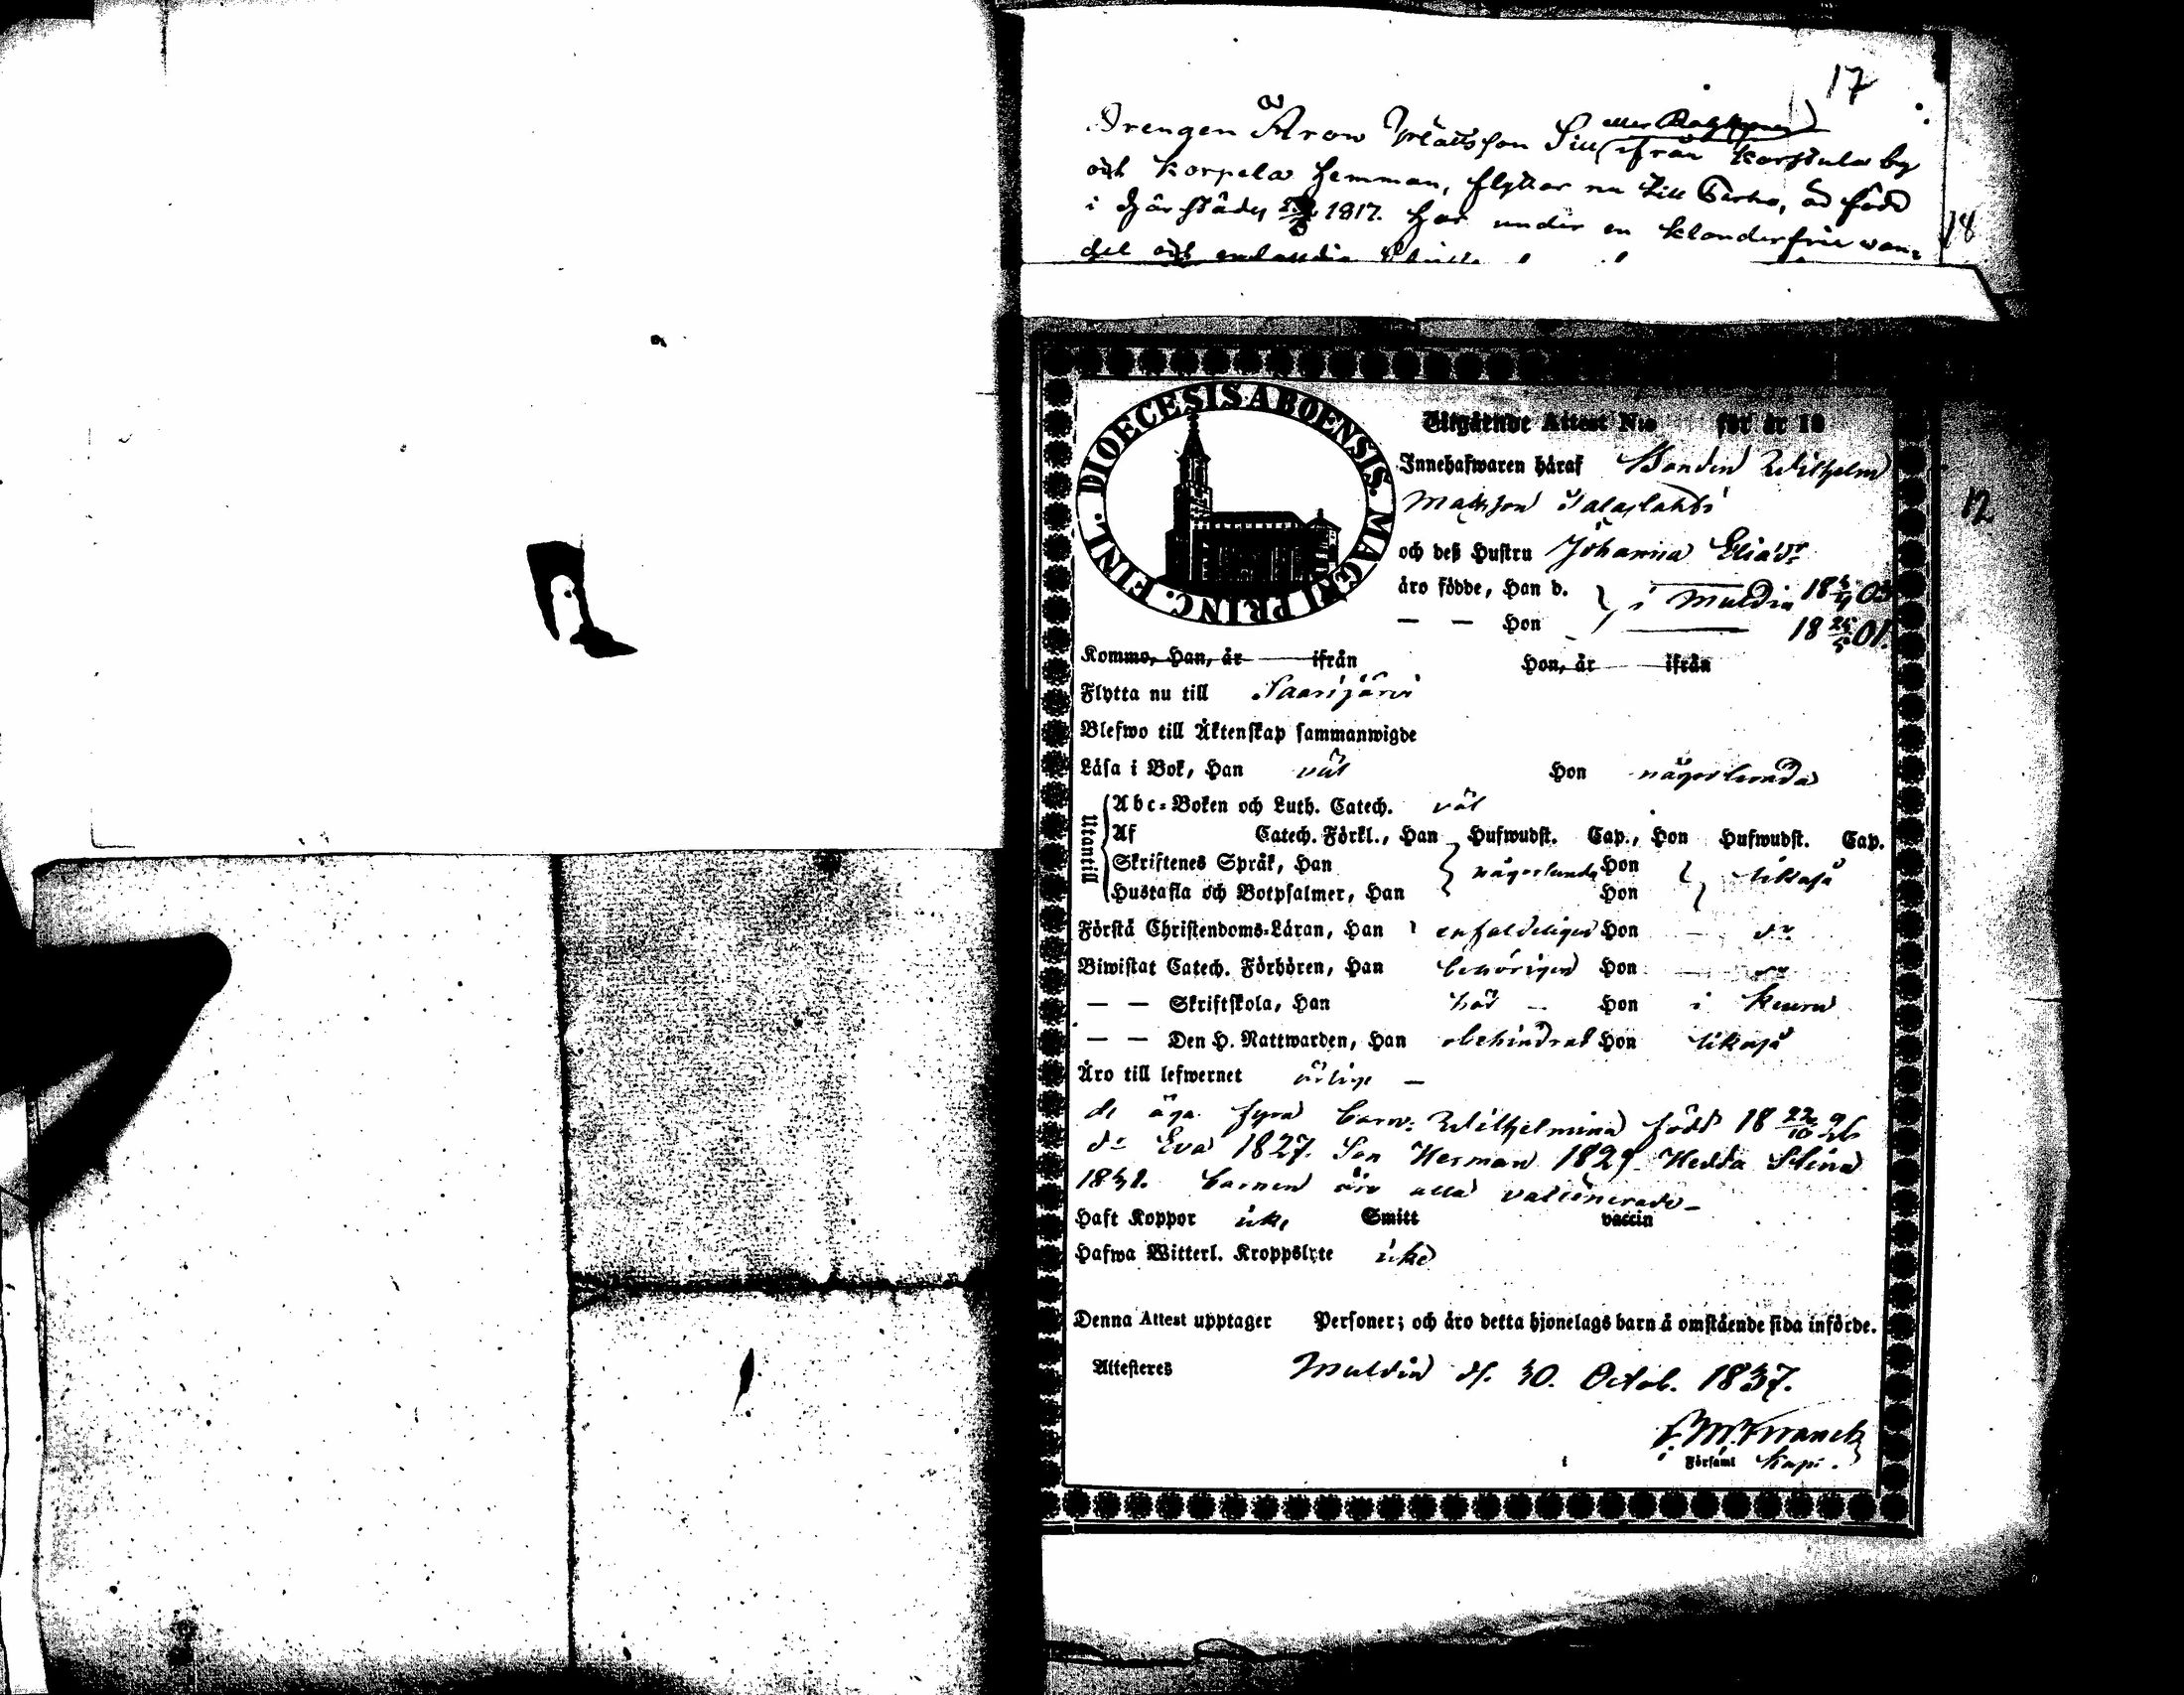 17
Drengen Aron Mattsson Sill (eller ifrån Karstula by
och Korpela Hemman, flyttar nu till Perho, är född
i Härstädes 1817. Har under en klanderfrie wan=
del och
18
DIOECESIS ABOENSIS. MAGNI PRINC. FINL.
Utgående Attest N:o för år 18
Innehafwaren häraf Bonden Wilhelm
Matsson Talaslahti
och deß Hustru Johanna Eliasdr
12
äro födde, Han d. i Muldia 18 03
— — Hon 18 25/5 01.
Kommo, Han, år ifrån Hon, år ifrån
Flytta nu till Saarijärvi
Blefwo till Äktenskap sammanwigde
Läsa i Bok, Han väl Hon någorlunda
Utantill
Abc=Boken och Luth. Catech. väl
Af Catech. Förkl., Han Hufwudst. Cap., Hon Hufwudst. Cap.
Skriftenes Språk, Han någorlunda Hon likaså
Hustafla och Botpsalmer, Han Hon
Förstå Christendoms=Läran, Han enfaldeligen Hon — do
Biwistat Catech. Förhören, Han behörigen Hon — do
— — Skriftskola, Han Hon i Keuru
— — Den H. Nattwarden, Han obehindrad Hon likaså
Äro till lefwernet ärlige —
de äga fyra barn: Wilhelmina född 18 22/10 26
do Eva 1827. Son Herman 1829. Hedda Stina
1832. barnen äro alla vaccinerade —
Haft Koppor icke Smitt vaccin
Hafwa Witterl. Kroppslyte icke
Denna Attest upptager Personer; och äro detta hjonelags barn å omstående sida införde.
Attesteres Muldia d. 30. Octob. 1837.
Församl Kapl.